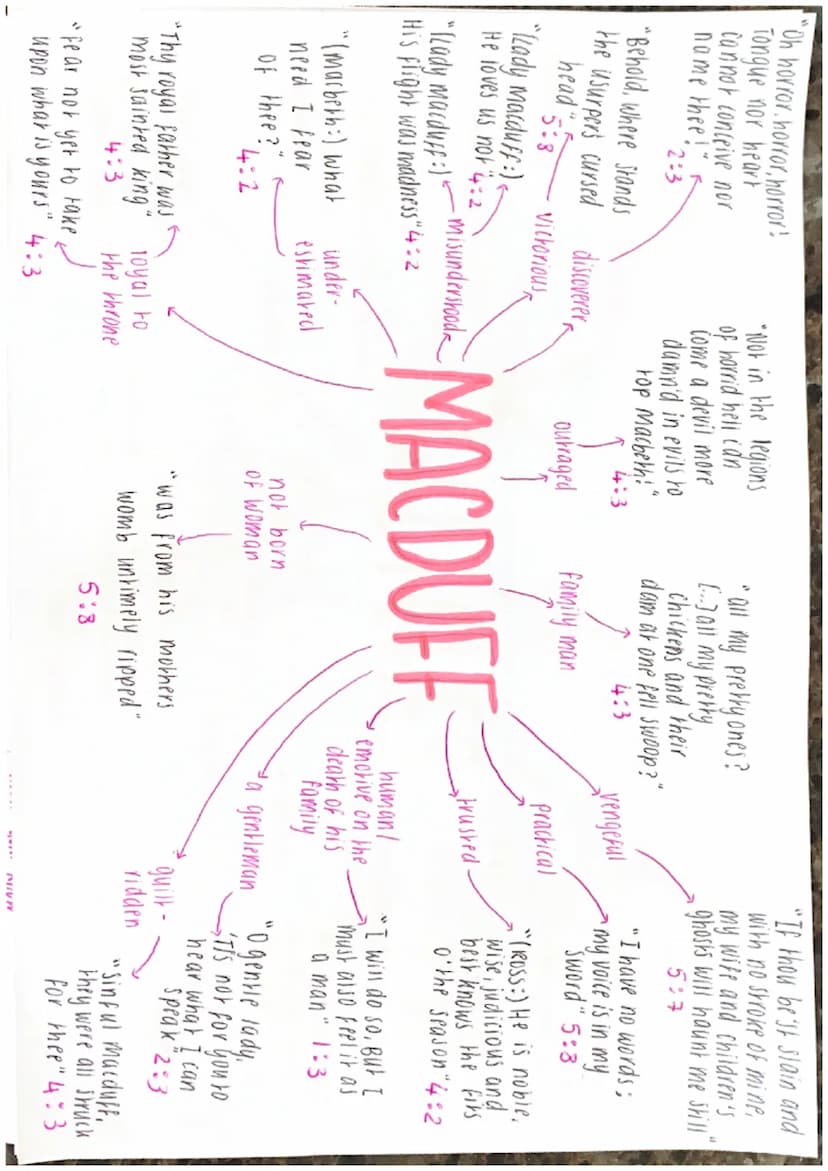 MACDUFF
discoverer
"Oh horror, horror, horror!
Tongue nor heart
cannot conceive nor
name thee!"
2:3
victorious
"Behold, where stands
the usurpers cursed
head"
5:8
misunderstood
"(Lady macduff:)
He loves us not"
4:2
"(Lady macduff:)
His flight was madness" 4:2
under-
estimated
"(macbeth:) what
need I fear
of thee?"
4:2
loyal to
the throne
"Thy royal father was
most sainted king"
4:3
"Fear not yet to take
upon what is yours" 4:3
outraged
"Not in the legions
of horrid hell can
come a devil more
damn'd in evils to
top macbeth!"
4:3
family man
"all my pretty ones?
[...] all my pretty
chickens and their
dam at one fell swoop?"
4:3
not born
of woman
"was from his mothers
womb untimely ripped"
5:8
vengeful
"If thou be'st slain and
with no stroke of mine
my wife and children's
ghosts will haunt me still"
5:7
practical
"I have no words:
my voice is in my
sword" 5:8
trusted
"(ROSS:) He is noble,
wise, judicious and
best knows the fits
o' the season" 4:2
human/
emotive on the
death of his
family
"I will do so, But I
must also feel it as
a man" 1:3
a gentleman
"O gentle lady,
'Tis not for you to
hear what I can
speak" 2:3
guilt-
ridden
"Sinful macduff,
they were all struck
for thee" 4:3